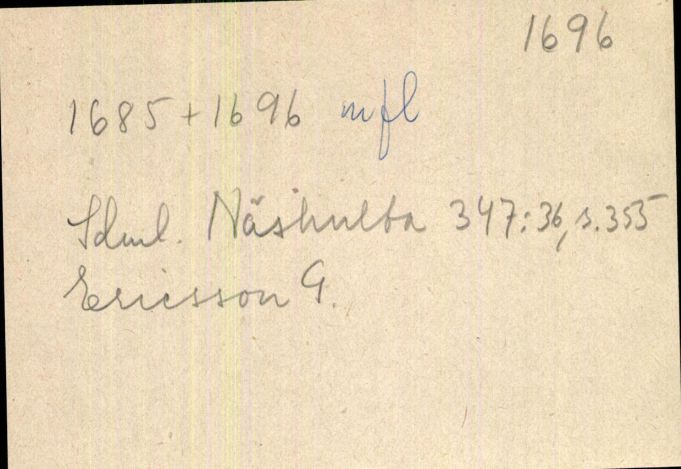 1696
1685+1696 mfl
Sdml. Näshulta 347:36, s. 355
Ericsson G.